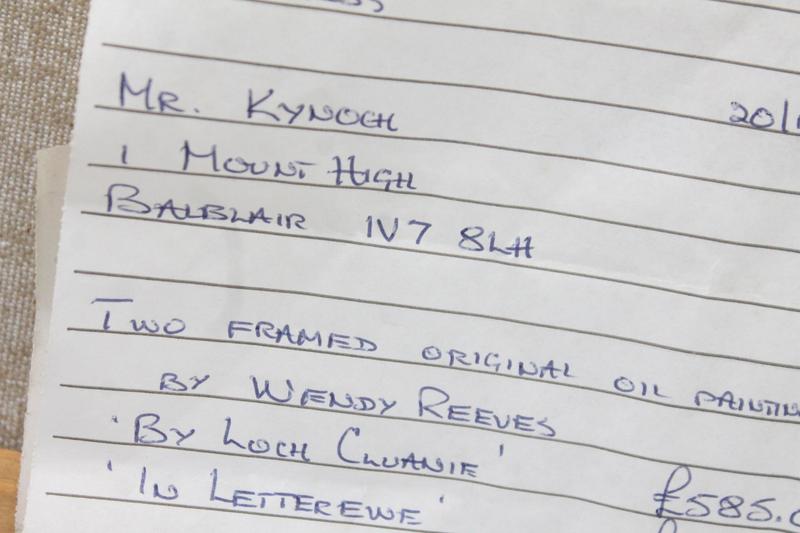 MR. KYNOCH 20/
1 MOUNT HIGH
BALBLAIR IV7 8LH
TWO FRAMED ORIGINAL OIL PAINTIN
BY WENDY REEVES
'BY LOCH CLUANIE'
'IN LETTEREWE' £585.